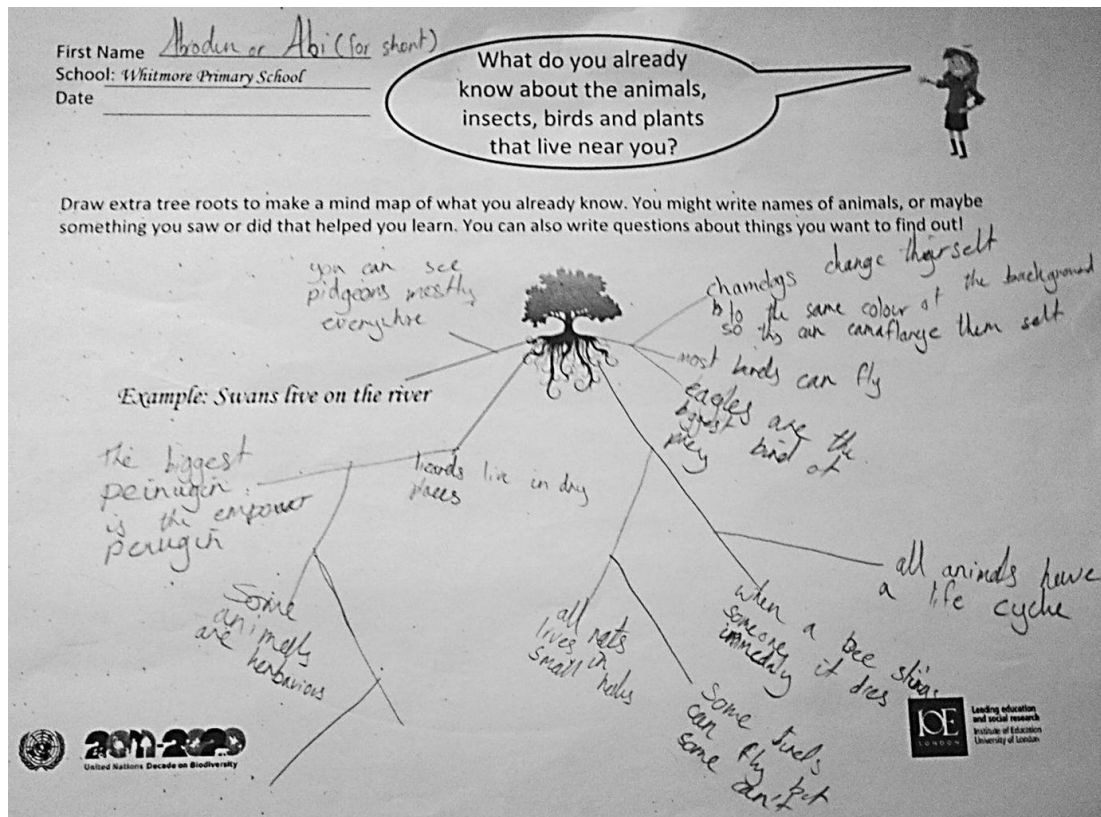 First Name Abiodun or Abi (for short)
School: Whitmore Primary School
Date
What do you already
know about the animals,
insects, birds and plants
that live near you?
Draw extra tree roots to make a mind map of what you already know. You might write names of animals, or maybe
something you saw or did that helped you learn. You can also write questions about things you want to find out!
you can see
pidgeons mostly
everywhre
Example: Swans live on the river
change
to the same colour of the background
so can camaflarge them self
most birds can fly
eagles are the
biggest bird of
prey
The biggest
peinugin
is the empower
penugin
lizards live in dry
places
Some
animells
are herbavious
all rats
lives in
small holes
when a bee stings
someone it dies
immedatly
all animals have
a life cycle
Some birds
can fly but
some can't
2011-2020
United Nations Decade on Biodiversity
IOE
LONDON
Leading education
and social research
Institute of Education
University of London